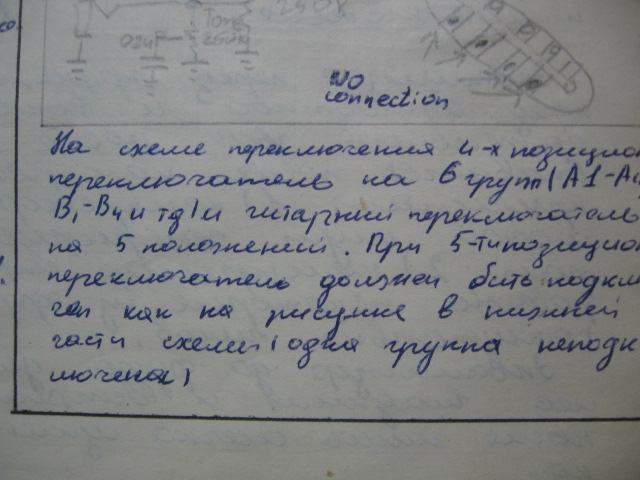 250k
Tone
.02uF
250k
NO
connection
На схеме переключения 4-х позицион
переключатель на 6 групп (А1-А4
В1-В4 и тд) и гитарний переключатель
на 5 положений. При 5-типозицион
переключатель должен бить подклю
чен как на рисунке в нижней
части схеми (одна группа неподк
лючена)